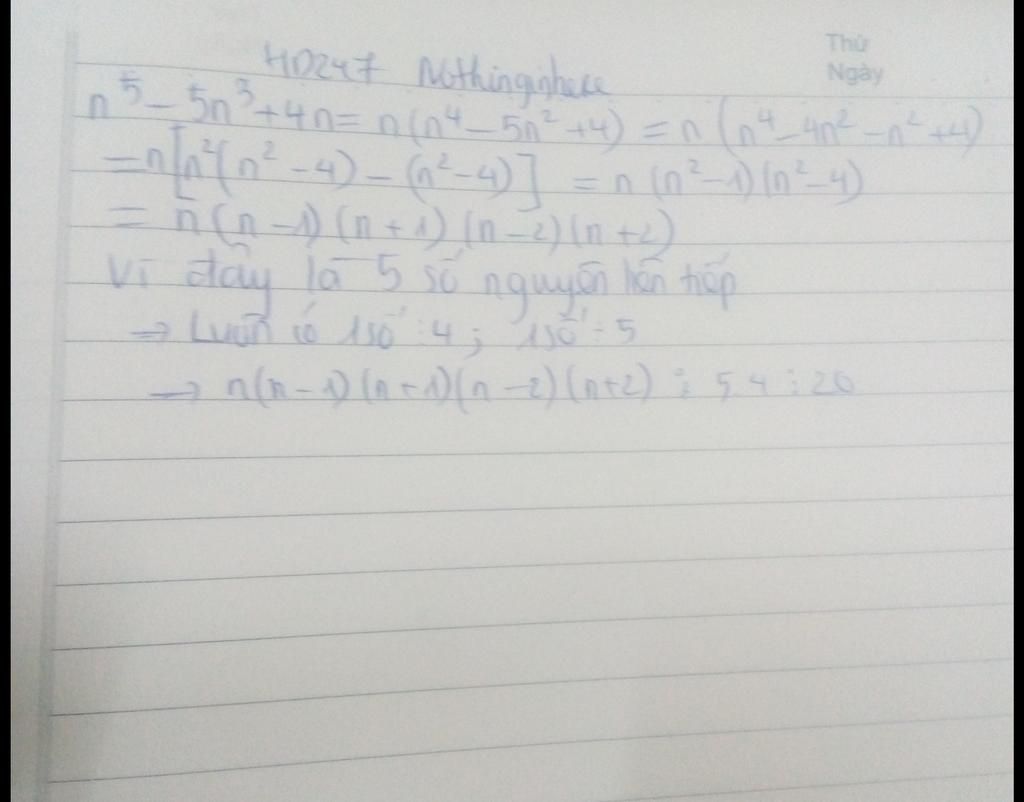 Thứ
Ngày
HD247 Nothinginhere
n⁵ - 5n³ + 4n = n(n⁴ - 5n² + 4) = n(n⁴ - 4n² - n² + 4)
= n[n²(n² - 4) - (n² - 4)] = n(n² - 1)(n² - 4)
= n(n - 1)(n + 1)(n - 2)(n + 2)
Vì đây là 5 số nguyên liên tiếp
→ Luôn có 1 số ⋮ 4; 1 số ⋮ 5
→ n(n - 1)(n + 1)(n - 2)(n + 2) ⋮ 5.4 ⋮ 20